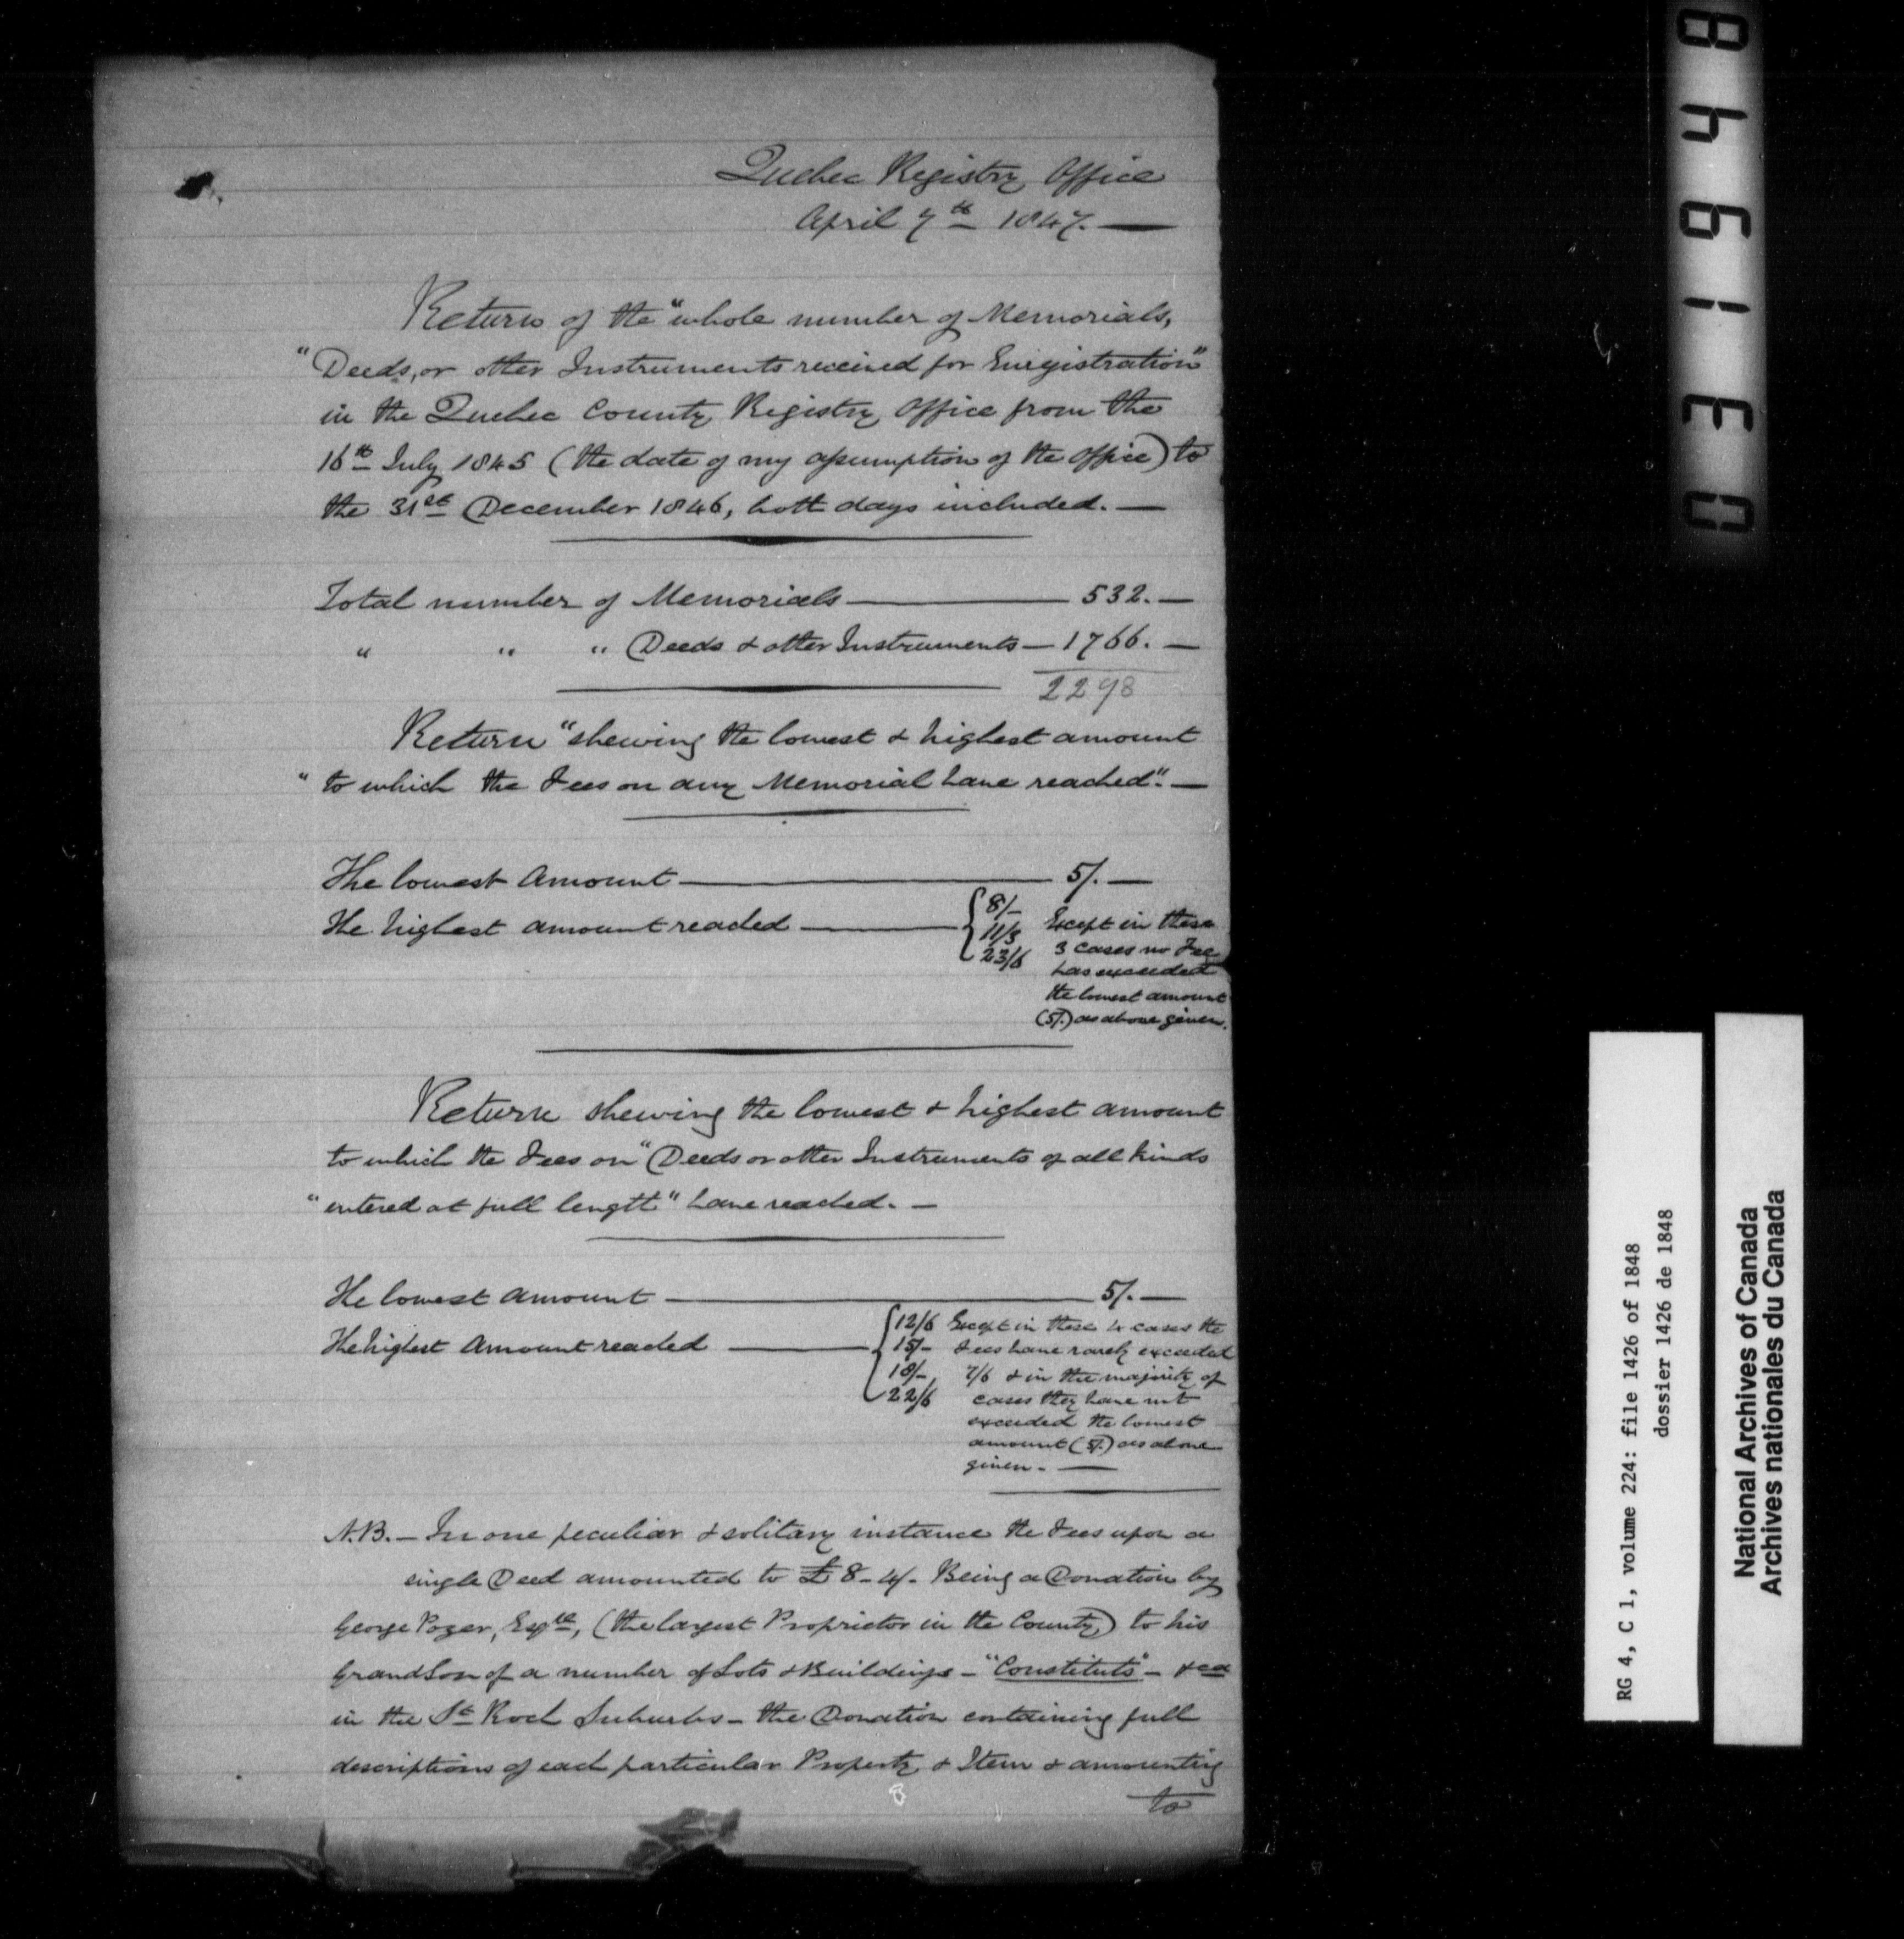 Quebec Registry Office
April 7th 1847. —
Return of the "whole number of Memorials,
"Deeds, or other Instruments received for Enregistration"
in the Quebec County Registry Office from the
16th July 1845 (the date of my assumption of the office) to
the 31st December 1846, both days included. —
Total number of Memorials — 532. —
" " " Deeds & other Instruments — 1766. —
2298
Return "shewing the lowest & highest amount
"to which the Fees on any Memorial have reached". —
The lowest Amount — 5/. —
The highest amount reached — { 8/- 11/3 23/6
Except in these
3 cases no Fee
has exceeded
the lowest amount
(5/.) as above given.
Return shewing the lowest & highest amount
to which the Fees on "Deeds or other Instruments of all kinds
"entered at full length" have reached. —
The lowest Amount — 5/. —
The highest Amount reached — { 12/6 15/- 18/- 22/6
Except in these 4 cases the
Fees have rarely exceeded
7/6 & in the majority of
cases they have not
exceeded the lowest
amount (5/.) as above
given. —
N.B. — In one peculiar & solitary instance the Fees upon a
single Deed amounted to £8-4/- Being a Donation by
George Pozer, Esqre, (the largest Proprietor in the County) to his
Grandson of a number of Lots & Buildings — "Constituts" — &ca
in the St Roch Suburbs — the Donation containing full
descriptions of each particular Property & Item & amounting
to
031948
RG 4, C 1, volume 224: file 1426 of 1848
dossier 1426 de 1848
National Archives of Canada
Archives nationales du Canada